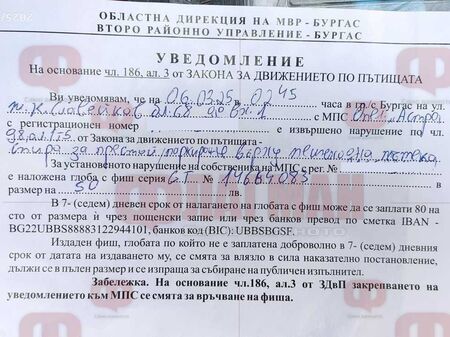 ОБЛАСТНА ДИРЕКЦИЯ НА МВР - БУРГАС
ВТОРО РАЙОННО УПРАВЛЕНИЕ - БУРГАС
УВЕДОМЛЕНИЕ
На основание чл. 186, ал. 3 от ЗАКОНА ЗА ДВИЖЕНИЕТО ПО ПЪТИЩАТА
Ви уведомявам, че на 06.03.25 в 0245 часа в гр.с Бургас на ул.
ж.к Славейков бл 68 до вх.1 с МПС Опел "Астра"
с регистрационен номер е извършено нарушение по чл.
98, ал.1 т.5 от Закона за движението по пътищата -
спира за престой паркиране върху пешеходна пътека
За установеното нарушение на собственика на МПС с рег. №
с наложена глоба с фиш серия GT № 11664085
в размер на 50
В 7- (седем) дневен срок от налагането на глобата с фиш може да се заплати 80 на
сто от размера ѝ чрез пощенски запис или чрез банков превод по сметка IBAN -
BG22UBBS88883122944101, банков код (BIC): UBBSBGSF.
Издаден фиш, глобата по който не е заплатена доброволно в 7- (седем) дневния
срок от датата на издаването му, се смята за влязло в сила наказателно постановление,
дължи се в пълен размер и се изпраща за събиране на публичен изпълнител.
Забележка. На основание чл.186, ал.3 от ЗДвП закрепването на
уведомлението към МПС се смята за връчване на фиша.